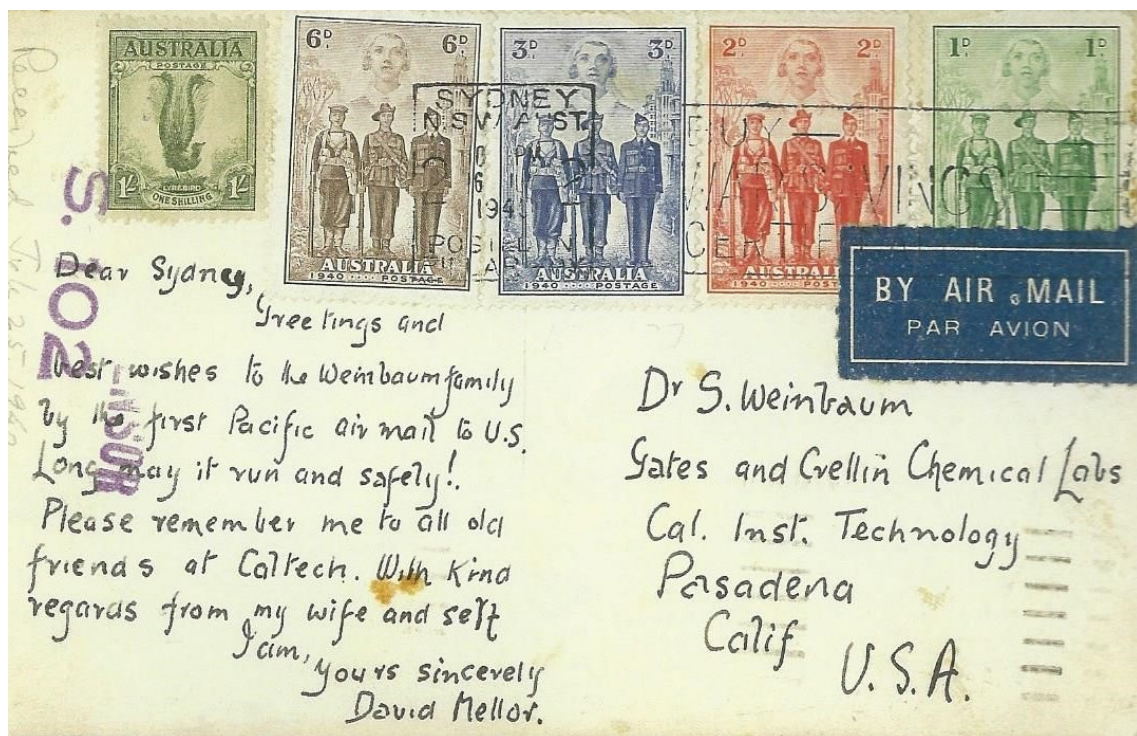 AUSTRALIA
POSTAGE
LYREBIRD
1/- 1/-
ONE SHILLING
6D. 6D.
AUSTRALIA
1940 POSTAGE
3D. 3D.
AUSTRALIA
1940 POSTAGE
2D. 2D.
AUSTRALIA
1940
1D. 1D.
SYDNEY
N.S.W. AUST.
194
BUY
WAR SAVINGS
BY AIR MAIL
PAR AVION
S. 102
Dear Sydney,
Greetings and
best wishes to the Weinbaum family
by the first Pacific air mail to U.S.
Long may it run and safely!
Please remember me to all old
friends at Caltech. With Kind
regards from my wife and self
I am,
yours sincerely
David Mellor.
Dr S. Weinbaum
Gates and Crellin Chemical Labs
Cal. Inst. Technology
Pasadena
Calif
U.S.A.